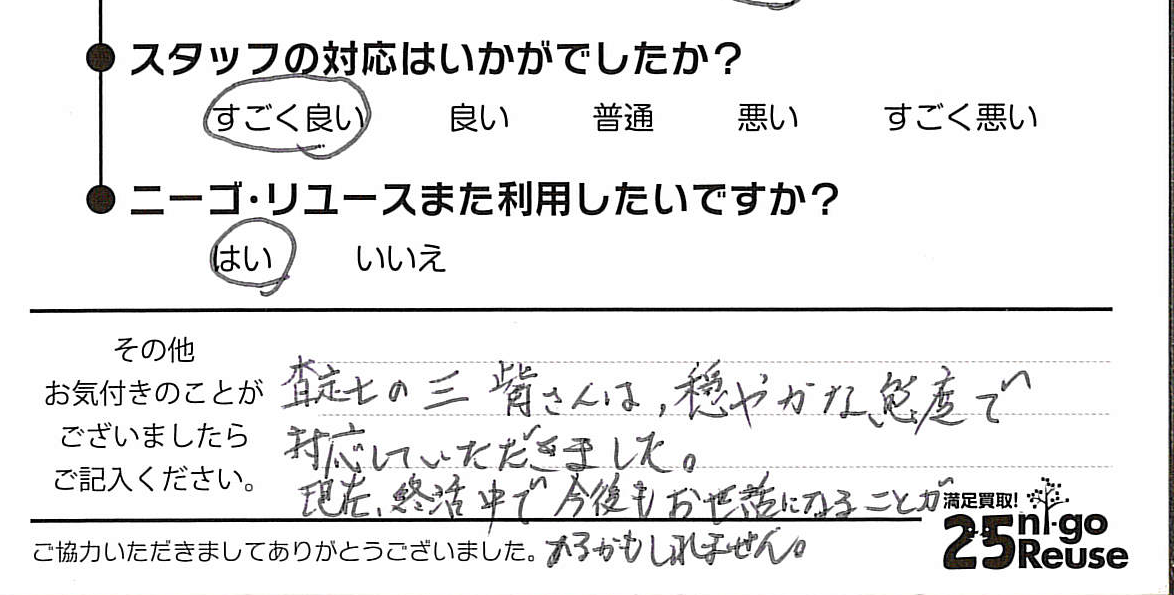 スタッフの対応はいかがでしたか？
すごく良い 良い 普通 悪い すごく悪い
ニーゴ・リユースまた利用したいですか？
はい いいえ
その他
お気付きのことが
ございましたら
ご記入ください。
査定士の三 さんは，穏やかな態度で
対応していただきました。
現在、終活中で今後もお世話になることが
あるかもしれません。
ご協力いただきましてありがとうございました。
満足買取!
25 ni-go
Reuse